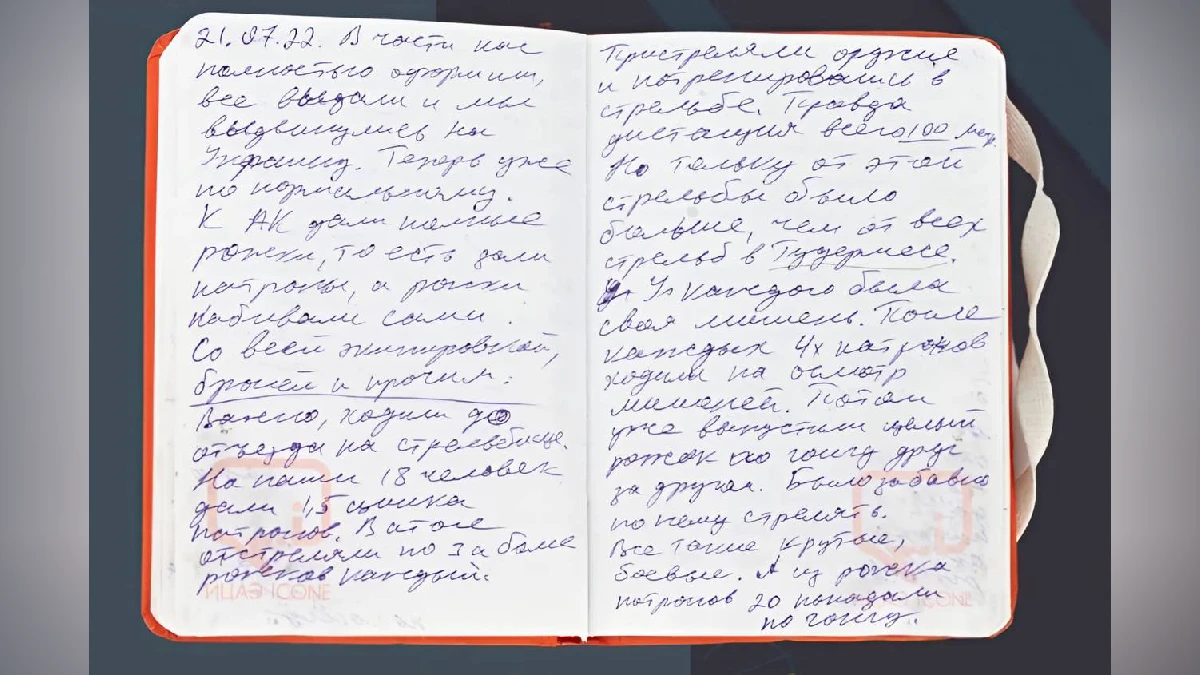 21.07.22. В части нас
полностью одорили,
все выдали и мы
выдвинулись на
Украину. Теперь уже
по нормальному.
К АК дали полные
рожки, то есть дали
патроны, а рожки
набивали сами.
Со всей экипировкой,
броней и прочим.
Важно, ходили до
отъезда на стрельбище.
На наши 18 человек
дали 1,5 цинка
патронов. В итоге
отстреляли по 3 а более
рожков каждый.
Пристреляли оружие
и потренировались в
стрельбе. Правда
дистанция всего 100 метр.
Но тольку от этой
стрельбы было
больше, чем от всех
стрельб в Гудермесе.
У каждого была
своя мишень. После
каждых 4х патронов
ходили на осмотр
мишеней. Потом
уже выпустили целый
рожок по гонгу друг
за другом. Было забавно
по нему стрелять.
Все такие крутые,
боевые. А из рожка
патронов 20 попадали
по гонгу.
ИЦАЭ ICONE
ICONE